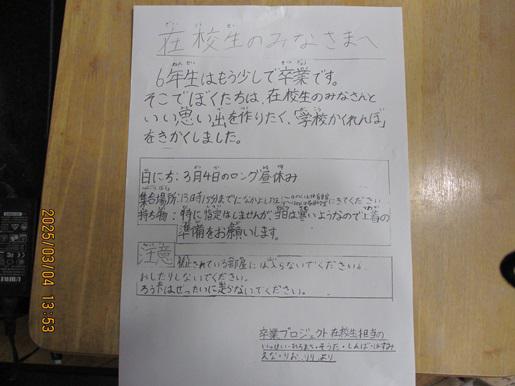 在校生のみなさまへ
6年生はもう少しで卒業です。
そこでぼくたちは、在校生のみなさんと
いい思い出を作りたく、「学校かくれんぼ」
をきかくしました。
日にち：3月4日のロング昼休み
集合場所：13時15分までに
にきてください
持ち物：特に指定はしませんが、当日は寒いようなので上着の
準備をお願いします。
注意
されている部屋には入らないでください。
おしたりしないでください。
ろうかはぜったいに走らないでください。
卒業プロジェクト在校生担当の
より
2025/03/04 13:53